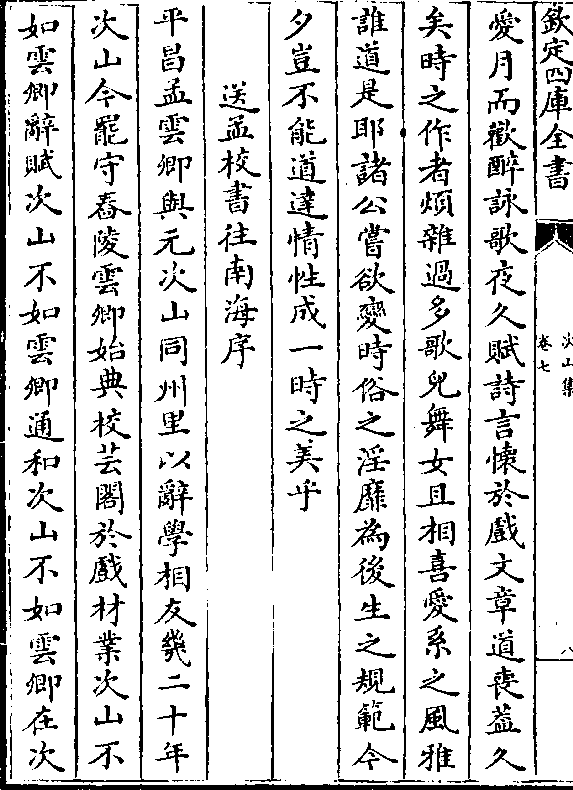 欽定四庫全書
次山集
卷七
八
愛月而歡醉詠歌夜久賦詩言懷於戲文章道喪葢久
矣時之作者煩雜過多歌兒舞女且相喜愛系之風雅
誰道是耶諸公嘗欲變時俗之淫靡為後生之規範今
夕豈不能道達情性成一時之美乎
送孟校書往南海序
平昌孟雲卿與元次山同州里以辭學相友幾二十年
次山今罷守舂陵雲卿始典校芸閣於戲材業次山不
如雲卿辭賦次山不如雲卿通和次山不如雲卿在次